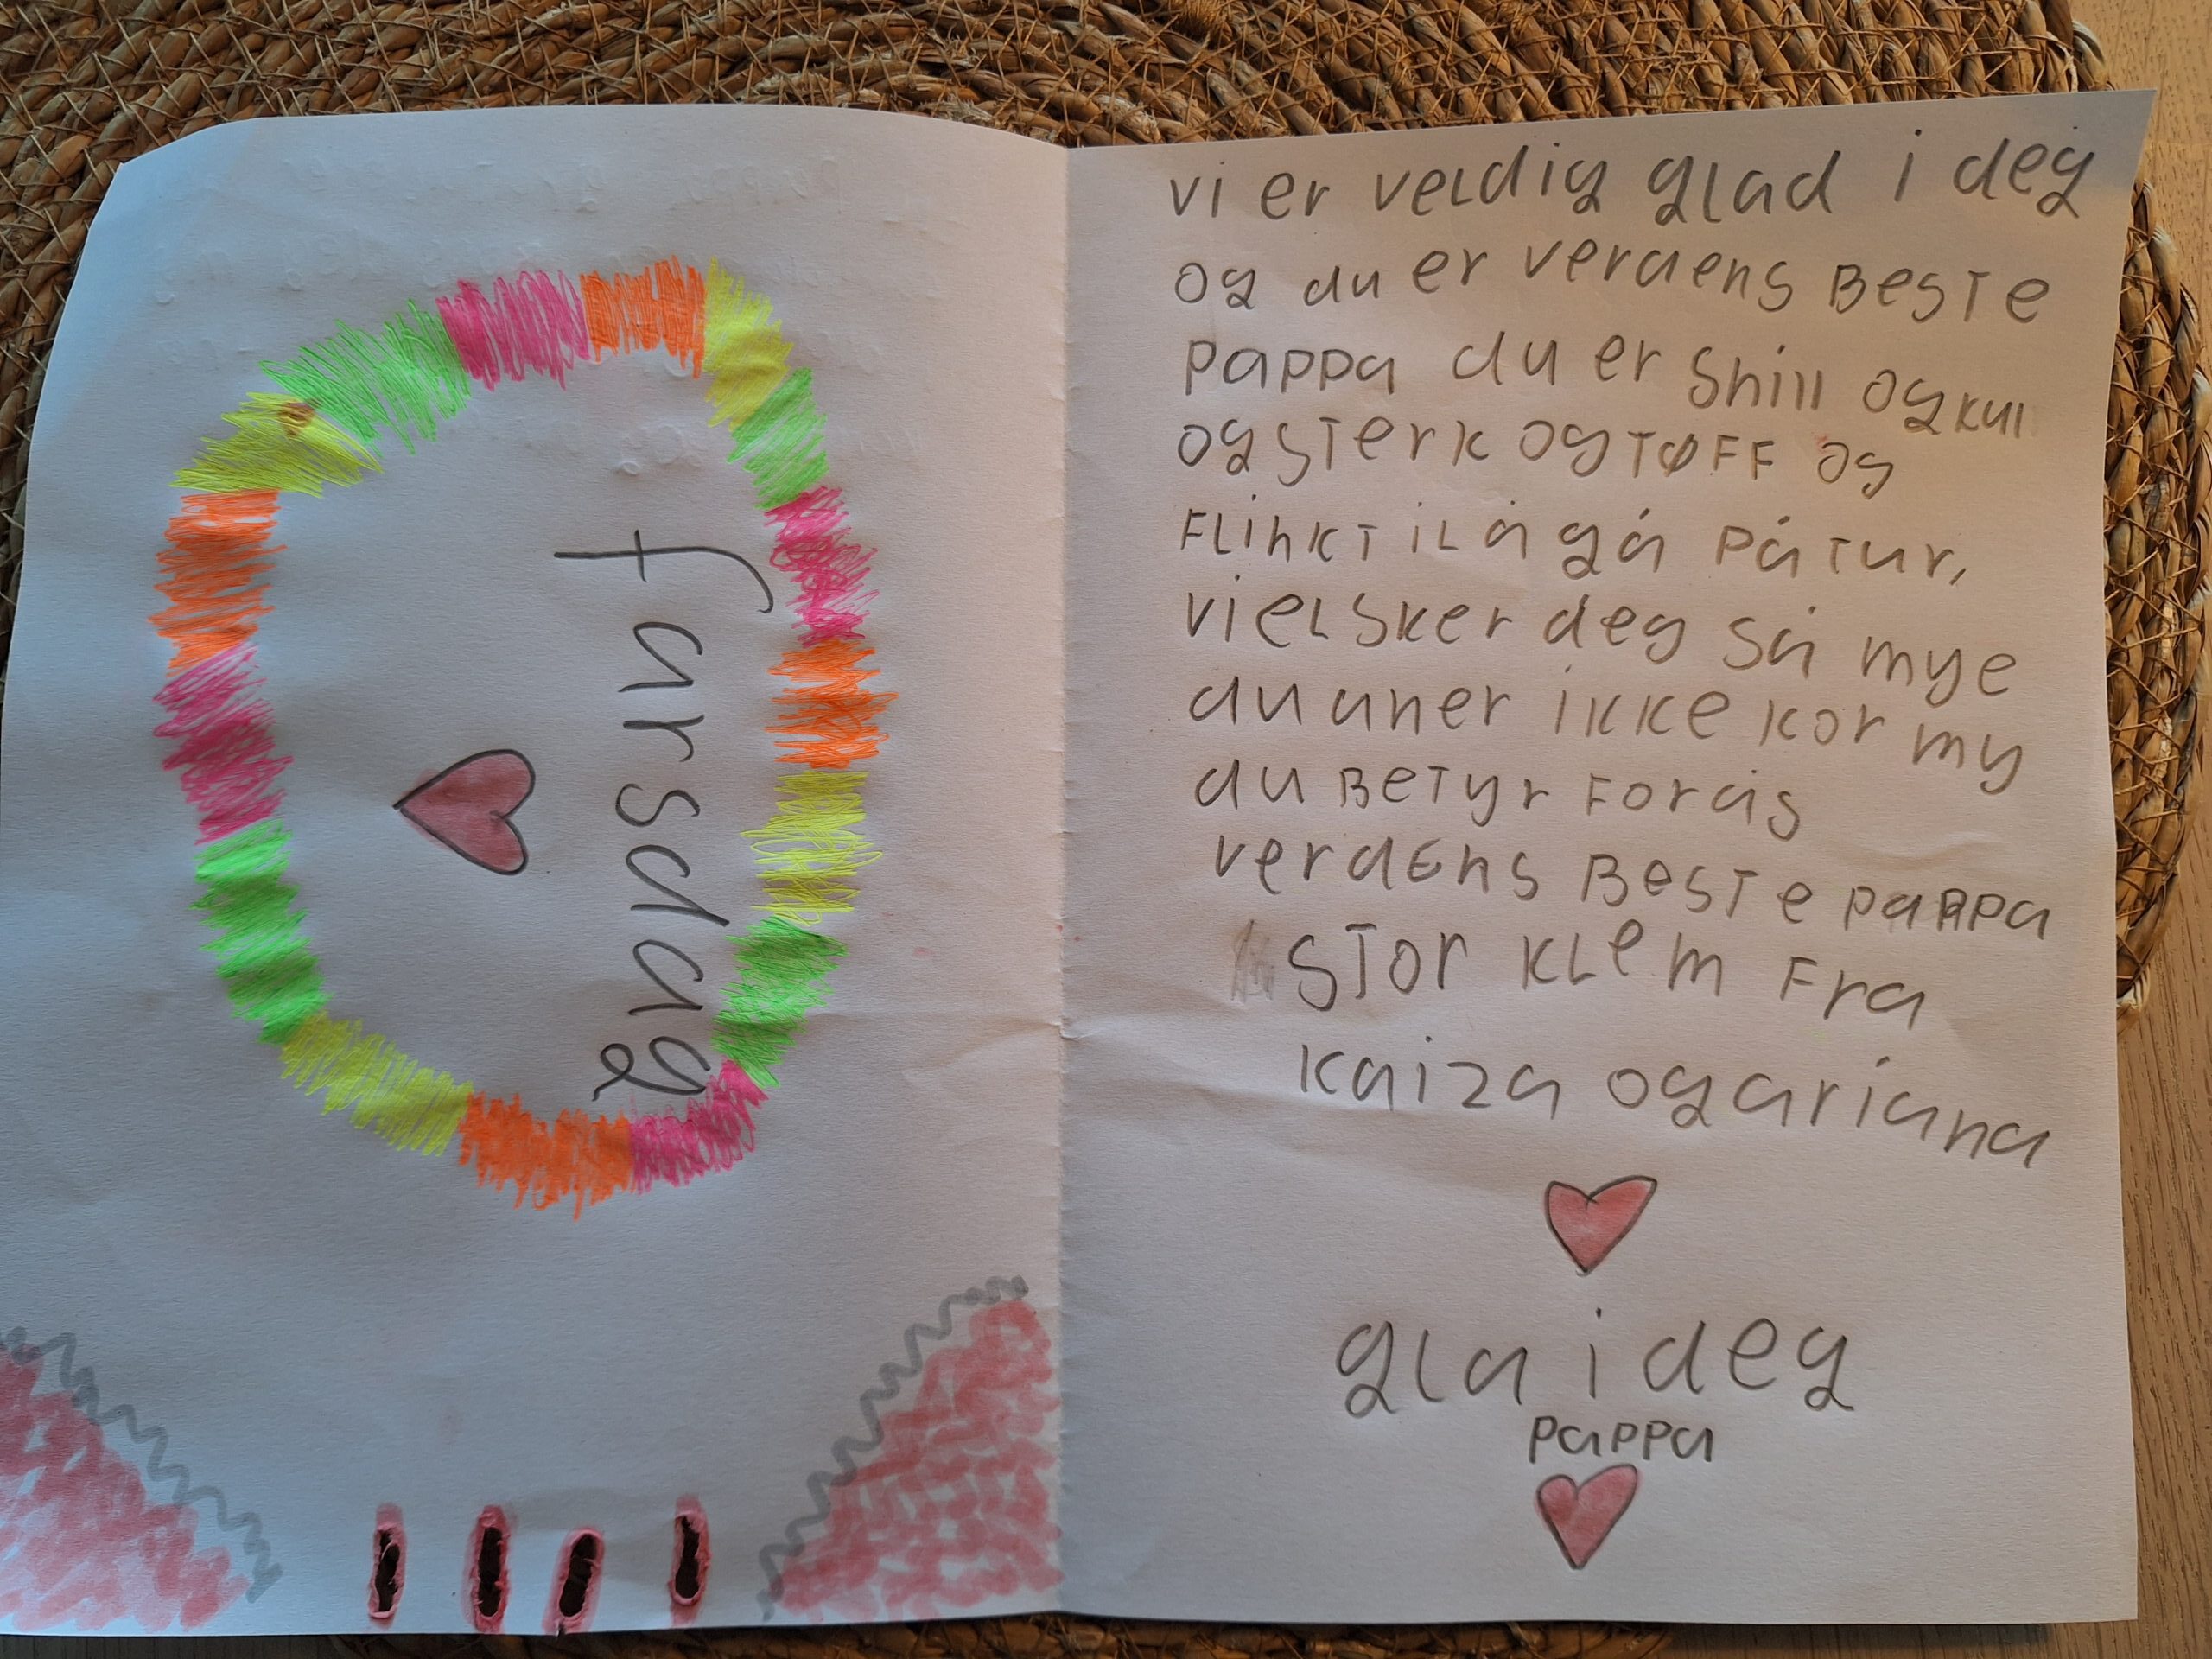 farsdag
vi er veldig glad i deg
og du er verdens Beste
pappa du er snill og kul
og sterk og tøff og
flinkt til å gå på tur,
vi elsker deg så mye
du aner ikke kor my
du Betyr for ås
verdens Beste pappa
stor klem fra
kaiza og ariana
gla i deg
pappa